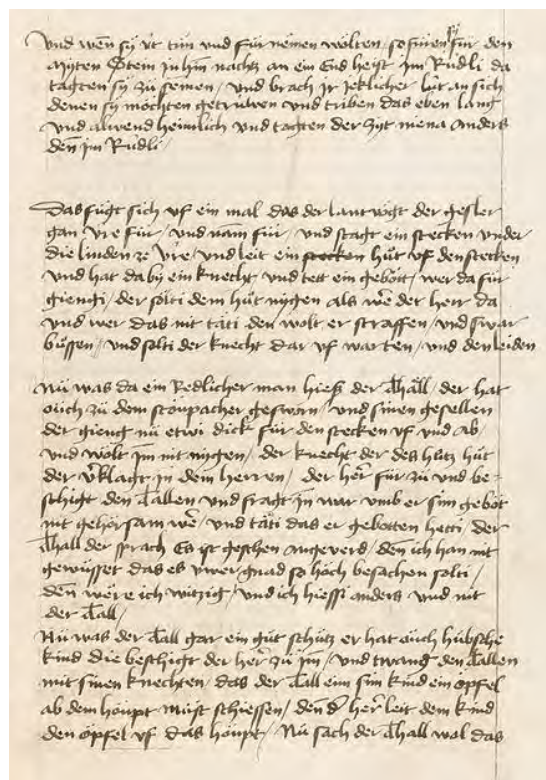 Und wen sÿ ut tůn und für nemen wolten so fůren sÿ für den
mÿten Stein jn hin nachtz an ein End heist Im Rüdli da
tagten sÿ zů semen / und brach jr jeklicher lüt an sich
denen sÿ möchten getruwen und triben das eben lang
und alwend heimlich und tagten der zyt niena anders
den jm Rüdli /
Das fůgt sich uf ein mal das der lantvogt der gesler
gan Ure für / und nam für / und stagt ein stecken under
die linden ze Ure / und leit ein stecken hůt uf den stecken
und hat da bÿ ein knecht und tett ein gebott / wer da für
giengi / der sölti dem hůt nÿgen als wer der herr da
und wer das nit täti den wölt er straffen / und swar
bůssen / und solti der knecht dar uf warten / und den leiden
Nů was da ein Redlicher man hiess der Thäll / der hat
ouch zů dem stoupacher gesworn / und sinen gesellen
der gieng nů etwi dick für den stecken uf und ab
und wölt jm nit nÿgen / der knecht der des hůtz hůt
der verklagt jn dem herren / der herr für zů und be-
schigt den Tallen und fragt jn war umb er sim gebot
nit gehorsam wer / und täti das er gebotten hetti / der
Thall der sprach Es ist geschen ongeverd / den ich han nit
gewüsset das es üwer gnad so hoch besachen sölti /
den were ich witzig / und ich hiessi anders und nit
der Tall /
Nů was der Tall gar ein gůt schütz er hat ouch hübsche
kind die beschigt der herr zů jm / und twang den Tallen
mit sinen knechten / das der Tall eim sim kind ein öpfel
ab dem houpt můst schiessen / den der herr leit dem kind
den öpfel uf das houpt / Nů sach der Thall wol das